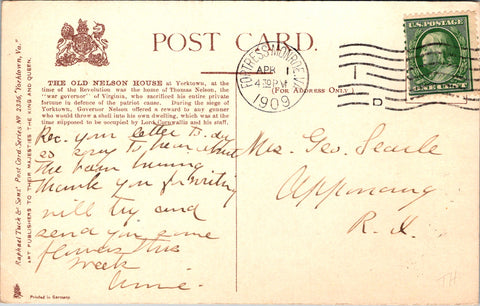 POST CARD.
THE OLD NELSON HOUSE at Yorktown, at the
time of the Revolution was the home of Thomas Nelson, the
"war governor" of Virginia, who sacrificed his entire private
fortune in defence of the patriot cause. During the siege of
Yorktown, Governor Nelson offered a reward to any gunner
who would throw a shell into his own dwelling, which was at the
time supposed to be occupied by Lord Cornwallis and his staff.
Rec. your letter to-day
so sorry to hear about
the barn burning
Thank you for writing
will try and
send you some
flowers this
week
Raphael Tuck & Sons' Post Card Series No. 2336, "Yorktown, Va."
ART PUBLISHERS TO THEIR MAJESTIES THE KING AND QUEEN.
Printed in Germany
FORTRESS MONROE, VA.
APR 1
4-30 PM
1909
(For Address Only.)
D
U.S. POSTAGE
ONE CENT
Mrs. Geo. Searle
Apponaug
R. I.
TH